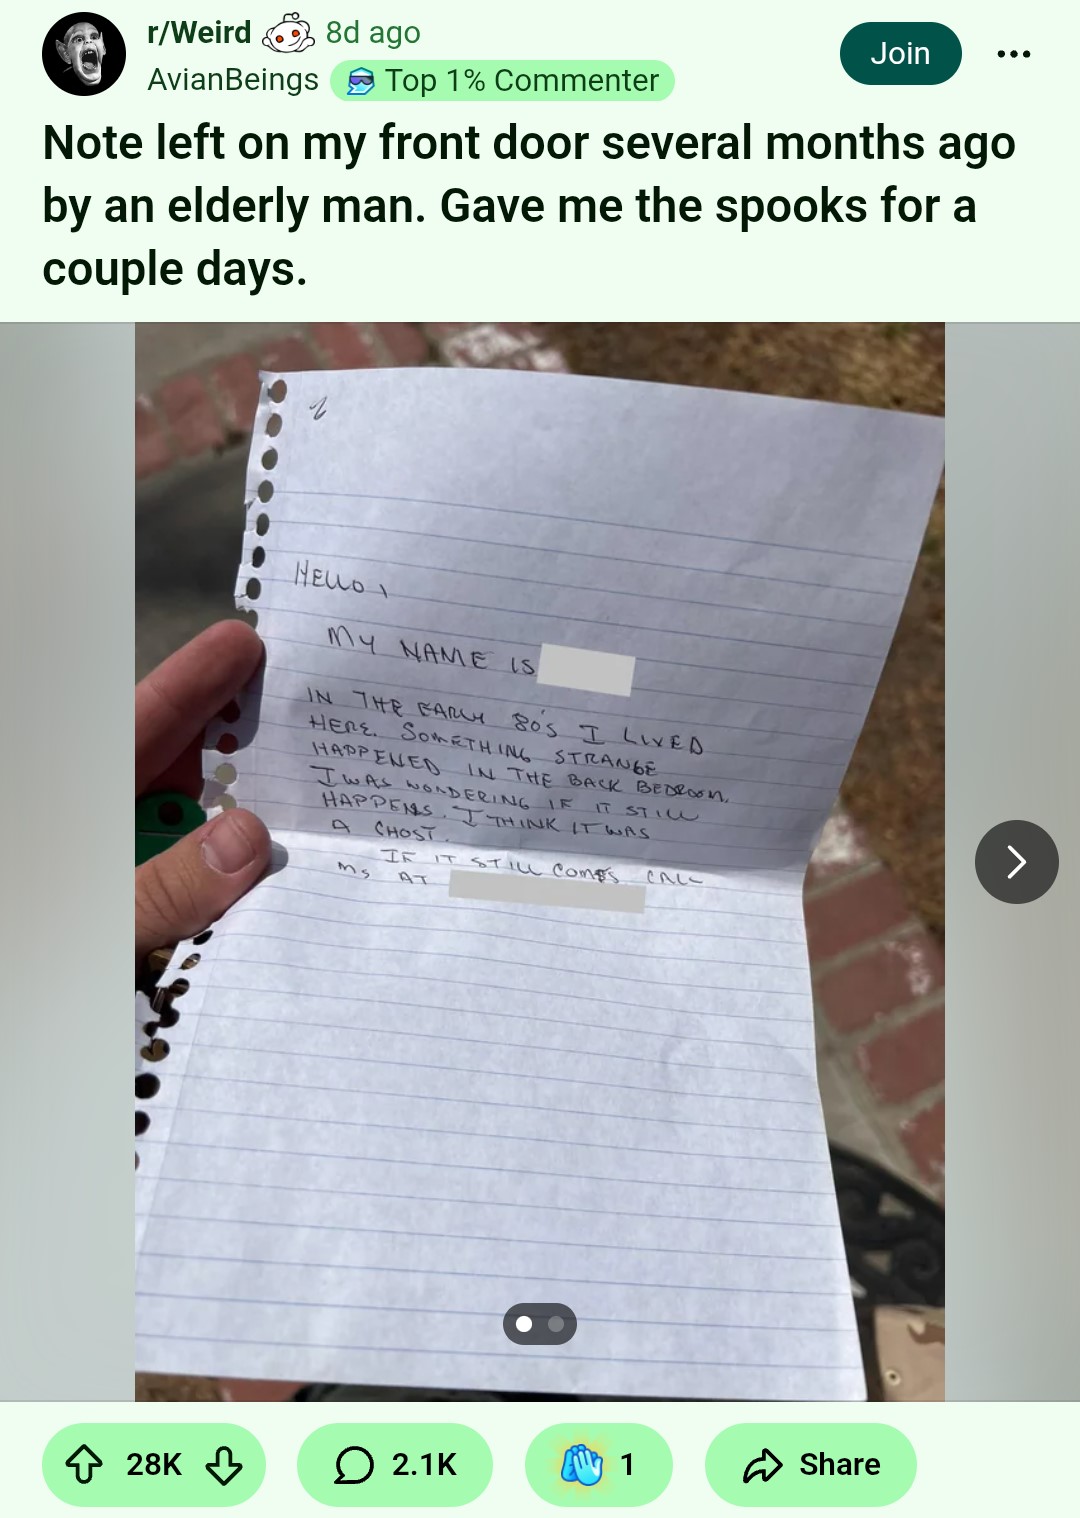 r/Weird 8d ago
AvianBeings Top 1% Commenter
Join
Note left on my front door several months ago
by an elderly man. Gave me the spooks for a
couple days.
HELLO,
MY NAME IS
IN THE EARLY 80'S I LIVED
HERE. SOMETHING STRANGE
HAPPENED IN THE BACK BEDROOM.
I WAS WONDERING IF IT STILL
HAPPENS. I THINK IT WAS
A GHOST.
IF IT STILL COMES CALL
AT
28K
2.1K
1
Share